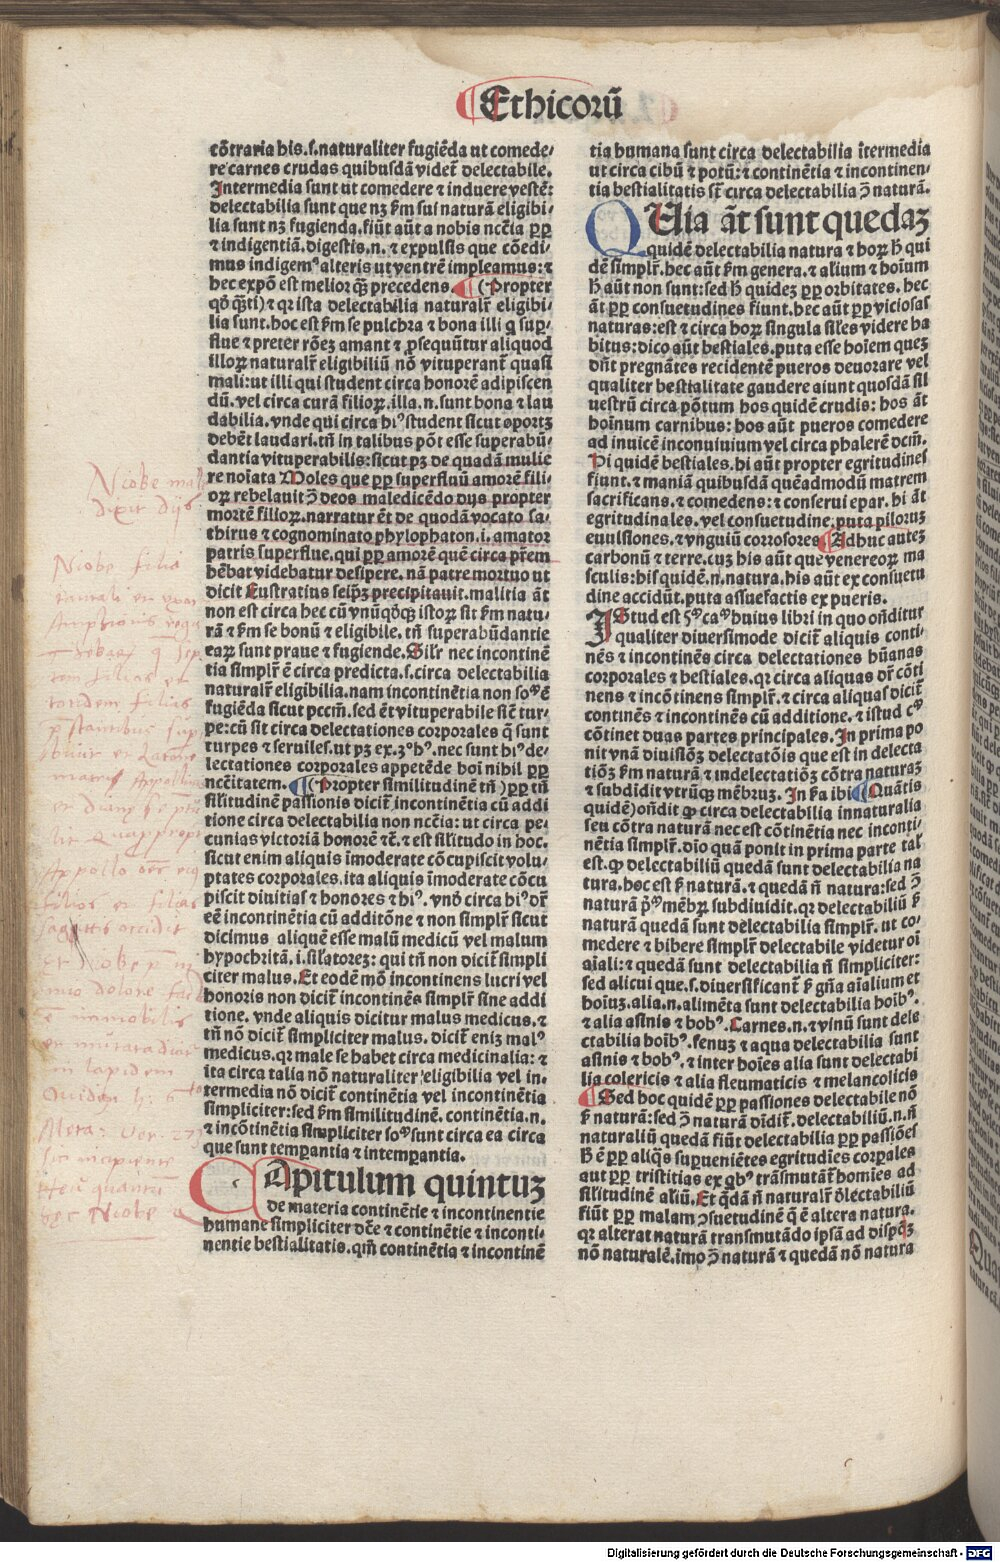 Ethicorū
cōtraria his.s.naturaliter fugiēda ut comede⸗
re carnes crudas quibusdā videt̄ delectabile.
Intermedia sunt ut comedere ⁊ induere vestē:
delectabilia sunt que nꝫ ẜm sui naturā eligibi⸗
lia sunt nꝫ fugienda.fiūt aūt a nobis nccīa ꝓꝑ
⁊ indigentiā.digestis.n.⁊ expulsis que cōedi⸗
mus indigemꝰ alteris ut ventrē impleamus:⁊
hec expō est melior q̄ꝫ precedens. (Propter
qd̄ q̄ꝫti) ⁊ qꝛ ista delectabilia naturalr̄ eligibi⸗
lia sunt.hoc est ẜm se pulchra ⁊ bona illi q̄ suꝑ⸗
flue ⁊ preter rōeꝫ amant ⁊ ꝓsequūtur aliquod
illoꝝ naturalr̄ eligibiliū nō vituperant̄ quasi
mali:ut illi qui student circa honorē adipiscen
dū.vel circa curā filioꝝ.illa.n.sunt bona ⁊ lau
dabilia.vnde qui circa hiꝰ student sicut oportꝫ
debēt laudari.tn̄ in talibus pōt esse superabū⸗
dantia vituperabilis:sicut pꝫ de quadā mulie
re noīata Moles que ꝓꝑ superfluū amorē fili⸗
oꝝ rebelauit ꝯ deos maledicēdo dijs propter
mortē filioꝝ.narratur ēt de quodā vocato sa⸗
thirus ⁊ cognominato phylophaton.i.amator
patris superflue.qui ꝓꝑ amorē quē circa pr̄em
hēbat videbatur desipere.nā patre mortuo ut
dicit Eustratius seip̄ꝫ precipitauit.malitia āt
non est circa hec cū vnūqd̄qꝫ istoꝝ sit ẜm natu⸗
rā ⁊ ẜm se bonū ⁊ eligibile.tn̄ superabūdantie
eaꝝ sunt praue ⁊ fugiende.Silr̄ nec incontinē
tia simplr̄ ē circa predicta.s.circa delectabilia
naturalr̄ eligibilia.nam incontinētia non soꝰ ē
fugiēda sicut pccm̄.sed ēt vituperabile sic̄ tur⸗
pe:cū sit circa delectationes corporales q̄ sunt
turpes ⁊ seruiles.ut pꝫ ex.3ꝰ hꝰ.nec sunt hiꝰ de⸗
lectationes corporales appetēde hoī nihil ꝓꝑ
nccītatem. (Propter similitudinē tn̄) ꝓꝑ tn̄
silitudinē passionis dicit̄ incontinētia cū addi
tione circa delectabilia non nccīa: ut circa pe⸗
cunias victoriā honorē ⁊c.⁊ est silītudo in hoc.
sicut enim aliquis īmoderate cōcupiscit volu⸗
ptates corporales.ita aliquis īmoderate cōcu
piscit diuitias ⁊ honores ⁊ hiꝰ.vnō circa hiꝰ dr̄
eē incontinētia cū additōne ⁊ non simplr̄ sicut
dicimus aliquē esse malū medicū vel malum
hypochritā.i.silatoreꝫ: qui tn̄ non dicit̄ simpli
citer malus.Et eodē mō incontinens lucri vel
honoris non dicit̄ incontinēs simplr̄ sine addi
tione.vnde aliquis dicitur malus medicus.⁊
tn̄ nō dicit̄ simpliciter malus.dicit̄ eniꝫ malꝰ
medicus.qꝛ male se habet circa medicinalia: ⁊
ita circa talia nō naturaliter eligibilia vel in⸗
termedia nō dicit̄ continētia vel incontinētia
simpliciter:sed ẜm similitudinē.continētia.n.
⁊ incōtinētia simpliciter soꝰ sunt circa ea circa
que sunt temꝑantia ⁊ intemꝑantia.
Capitulum quintuꝫ
de materia continētie ⁊ incontinentie
humane simpliciter dc̄e ⁊ continētie ⁊ inconti⸗
nentie bestialitatis.qm̄ continētia ⁊ incontinē
tia humana sunt circa delectabilia ītermedia
ut circa cibū ⁊ potū: ⁊ continētia ⁊ incontinen⸗
tia bestialitatis st̄ circa delectabilia ꝯ naturā.
QUia āt sunt quedaꝫ
quidē delectabilia natura ⁊ hoꝝ h̄ qui
dē simplr̄.hec aūt ẜm genera.⁊ alium ⁊ hoīum
h̄ aūt non sunt:sed h̄ quideꝫ ꝓꝑ orbitates.hec
āt ꝓꝑ consuetudines fiunt.hec aūt ꝓꝑ viciosas
naturas:est ⁊ circa hoꝝ singula siles videre ha
bitus:dico aūt bestiales.puta esse hoīem queꝫ
dn̄t pregnātes recidentē pueros deuorare vel
qualiter bestialitate gaudere aiunt quosdā sil
uestrū circa pōtum hos quidē crudis: hos āt
hoīnum carnibus: hos aūt pueros comedere
ad inuicē inconuiuium vel circa phalerē dcm̄.
Hi quidē bestiales.hi aūt propter egritudines
fiunt.⁊ maniā quibusdā quēadmodū matrem
sacrificans.⁊ comedens: ⁊ conserui epar.hi āt
egritudinales.vel consuetudine.puta piloruꝫ
euulsiones.⁊ vnguiū corrosores. Adhuc auteꝫ
carbonū ⁊ terre.cuꝫ his aūt que venereoꝝ ma
sculis:his quidē.n.natura.his aūt ex consuetu
dine accidūt.puta assuefactis ex pueris.
IStud est 5ᵐ caᵐ huius libri in quo oñditur
qualiter diuersimode dicit̄ aliquis conti⸗
nēs ⁊ incontinēs circa delectationes hūanas
corporales ⁊ bestiales.qꝛ circa aliquas dr̄ cōti
nens ⁊ incōtinens simplr̄.⁊ circa aliquas dicit̄
continēs ⁊ incontinēs cū additione.⁊ istud cᵐ
cōtinet duas partes principales.In prima po
nit vnā diuisiōꝫ delectatōis que est in delecta
tiōꝫ ẜm naturā ⁊ indelectatiōꝫ cōtra naturaꝫ
⁊ subdidit vtrūqꝫ mēbruꝫ.In ẜa ibi (Quātis
quidē) oñdit ꝙ circa delectabilia innaturalia
seu cōtra naturā nec est cōtinētia nec inconti⸗
nētia simplr̄.dīo quā ponit in prima parte tal
est.ꝙ delectabiliū quedā sunt delectabilia na
tura.hoc est ẜ naturā.⁊ quedā n̄ natura:sed ꝯ
naturā p̄ᵐ mēbꝝ subdiuidit.qꝛ delectabiliū ẜ
naturā quedā sunt delectabilia simplr̄.ut co⸗
medere ⁊ bibere simplr̄ delectabile videtur oī
aīali:⁊ quedā sunt delectabilia n̄ simpliciter:
sed alicui que.s.diuersificant̄ ẜ gn̄a aīalium et
hoīuꝫ.alia.n.alimēta sunt delectabilia hoībꝰ.
⁊ alia asinis ⁊ bobꝰ.Carnes.n.⁊ vinū sunt dele
ctabilia hoībꝰ.fenuꝫ ⁊ aqua delectabilia sunt
asinis ⁊ bobꝰ.⁊ inter hoīes alia sunt delectabi
lia colericis ⁊ alia fleumaticis ⁊ melancolicis
Sed hoc quidē ꝓꝑ passiones delectabile nō
ẜ naturā:sed ꝯ naturā dīdit̄.delectabiliū.n.n̄
naturaliū quedā fiūt delectabilia ꝓꝑ passiōes
h̄ ē ꝓꝑ aliq̄s suꝑueniētes egritudīes corꝑales
aut ꝓꝑ tristitias ex qbꝰ trāsmutāt̄ homīes ad
silitudinē aliū.Et q̄dā n̄ naturalr̄ d̄lectabiliū
fiūt ꝓꝑ malam ꝯsuetudinē q̄ ē altera natura.
qꝛ alterat naturā transmutādo ipsā ad dispōꝫ
nō naturalē.imo ꝯ naturā ⁊ quedā nō natura
Niobe male
dixit dijs
Niobe filia
tantali et vxor
Amphionis regis
Thebarum q̄ sep
tem filias et
totidem filios
Apollo
filios et filias
sagittis occidit
et Niobe p̄ ni
mio dolore fact
ē immobilis
et mutata
in lapidem
Ouidius li: 6ᵗᵒ
Meta:
incipiente
Heu quantū
hec Niobe
Digitalisierung gefördert durch die Deutsche Forschungsgemeinschaft - DFG